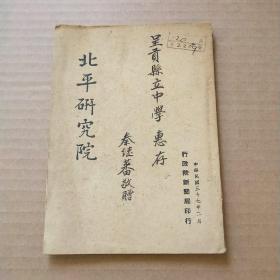 呈貢縣立中學 惠存
秦繼蕃敬贈
北平研究院
中華民國三十七年二月
行政院新聞局印行